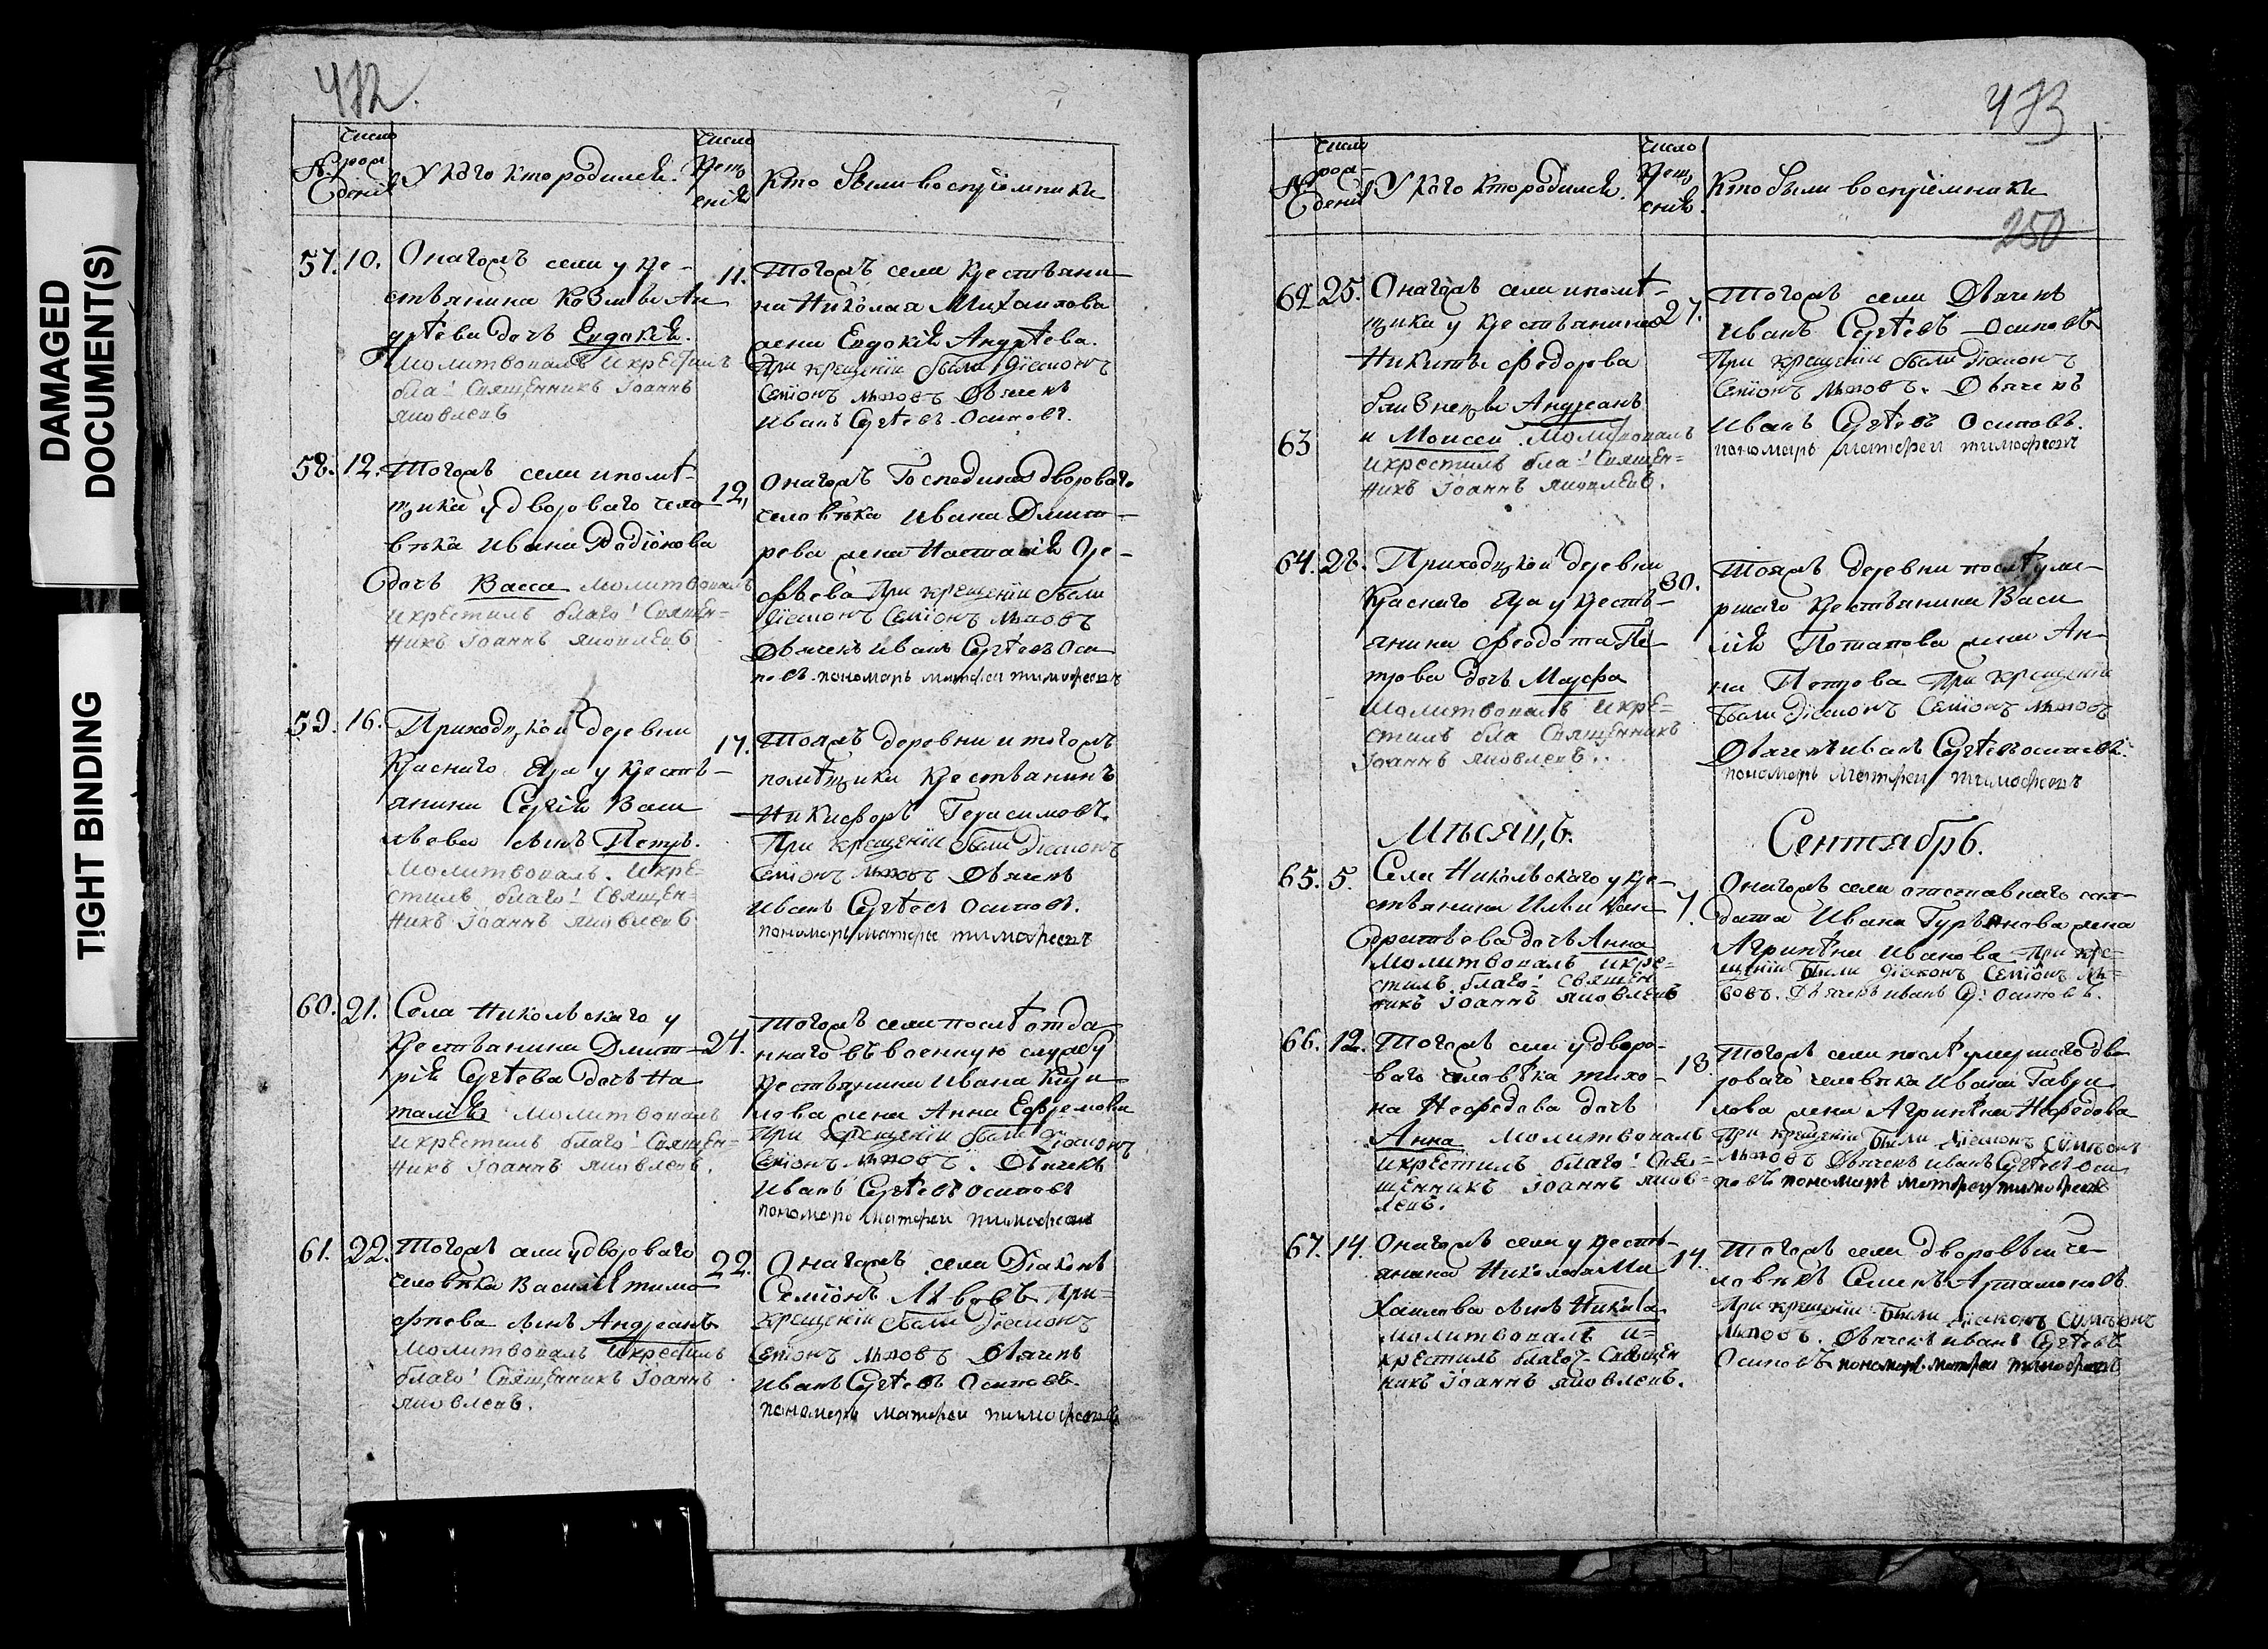 DAMAGED
DOCUMENT(S)
TIGHT BINDING
482.
№
Число рож дения
У кого кто родился.
Число Крещ ения
Кто были восприемники
57.
10.
Онагожъ села у кре-
стьянина Козмы Ан
дрѣева дочь Евдокия.
Молитвовалъ и крестилъ
бла! Священникъ Іоаннъ
Яковлевъ
11.
Тогожъ села крестьяни-
на Николая Михаилова
жена Евдокия Андрѣева.
При крещеніи были Діаконъ
Семіонъ Львовъ Дьячекъ
Иванъ Сергѣевъ Осиповъ.
58.
12.
Тогожъ села и помѣ-
щика у двороваго чело
вѣка Ивана Родіонова
дочь Васса Молитвовалъ
и крестилъ благо! Священ=
никъ Іоаннъ Яковлевъ
12,
Онагожъ Господина двороваго
человѣка Ивана Дмит-
рева жена Настасия
При крещеніи были
Діаконъ Семіонъ Львовъ
Дьячекъ Иванъ Сергѣевъ Оси
повъ. пономарь матфеи тимофеевъ
59.
16.
Приходцкой деревни
Краснаго Яра у кресть-
янина Сергія Васи
льева сынъ Петръ.
Молитвовалъ. и кре=
стилъ благо! Священ=
никъ Іоаннъ Яковлевъ
17.
Тояжъ деревни и тогожъ
помѣщика крестьянинъ
Никифоръ Герасимовъ.
При крещеніи были Діаконъ
Семіонъ Львовъ Дьячекъ
Иванъ Сергѣевъ Осиповъ.
пономарь матфеи тимофеевъ
60.
21.
Села Никольскаго у
крестьянина Дмит-
рія Сергѣева дочь На
талия Молитвовалъ
и крестилъ благо! Священ=
никъ Іоаннъ Яковлевъ.
24.
Тогожъ села послѣ отда
ннаго въ военную службу
крестьянина Ивана
жена Анна Ефремова
При крещеніи были Діаконъ
Семіонъ Львовъ. Дьячекъ
Иванъ Сергѣевъ Осиповъ
пономарь матфеи тимофеевъ
61.
22.
Тогожъ села у двороваго
человѣка Василия тимо
фѣева сынъ Андреанъ
Молитвовалъ и крестилъ
благо! Священникъ Іоаннъ
Яковлевъ.
22.
Онагожъ села Діаконъ
Семіонъ Львовъ При=
крещеніи были Діаконъ
Семіонъ Львовъ Дьячекъ
Иванъ Сергѣевъ Осиповъ.
пономарь матфеи тимофеевъ
483
№
Число рож- дения
У кого кто родился.
Число Крещ ения.
Кто были восприемники
250
62
25.
Онагожъ села и помѣ-
щика у крестьянина
Никиты Федорова
близнецы Андреанъ
63
и Моисеи. Молитвовалъ
и крестилъ бла! Священ=
никъ Іоаннъ Яковлевъ.
27.
Тогожъ села Дьячекъ
Иванъ Сергѣевъ Осиповъ
При крещеніи были Діаконъ
Семіонъ Львовъ. Дьячекъ
Иванъ Сергѣевъ Осиповъ.
пономарь матфеи тимофеевъ
64.
28.
Приходцкой деревни
Краснаго Яра у кресть-
янина Феодота Пе-
трова дочь Марфа
Молитвовалъ и кре=
стилъ бла Священникъ
Іоаннъ Яковлевъ.
30.
Тояжъ деревни послѣ уме-
ршаго крестьянина Васи
лія Потапова жена Ан-
на Петрова При крещеніи
были Діаконъ Семіонъ Львовъ
Дьячекъ Иванъ Сергѣевъ Осиповъ.
пономарь матфеи тимофеевъ
Мѣсяцъ.
Сентябрь.
65.
5.
Села Никольскаго у кре-
стьянина Ильи Кон-
дратьева дочь Анна
Молитвовалъ и кре=
стилъ благо! Священ
никъ Іоаннъ Яковлевъ
7.
Онагожъ села отставнаго сол-
дата Ивана Гурьянова жена
Агрипѣна Иванова При кре=
щеніи были Діаконъ Семіонъ Ль=
вовъ. Дьячекъ Иванъ Се: Осиповъ.
66.
12.
Тогожъ села у дворо-
ваго человѣка тихо-
на Нефедова дочь
Анна Молитвовалъ
и крестилъ благо! Свя=
щенникъ Іоаннъ Яков=
левъ.
13.
Тогожъ села послѣ умершаго дво
роваго человѣка Ивана Гаври
лова жена Агрипѣна Нефедова
При крещеніи были Діаконъ Сѵмеонъ
Львовъ Дьячекъ Иванъ Сергѣевъ Оси
повъ пономарь матфеи тимофеевъ
67.
14.
Онагожъ села у кресть-
янина Николая Ми
хаилова сынъ Никита
Молитвовалъ и=
крестилъ благо! Священ
никъ Іоаннъ Яковлевъ.
14.
Тогожъ села дворовыи че-
ловѣкъ Семенъ Артамоновъ
При крещеніи были Діаконъ Сѵмеонъ
Львовъ. Дьячекъ Иванъ Сергѣевъ
Осиповъ пономарь матфеи тимофеевъ